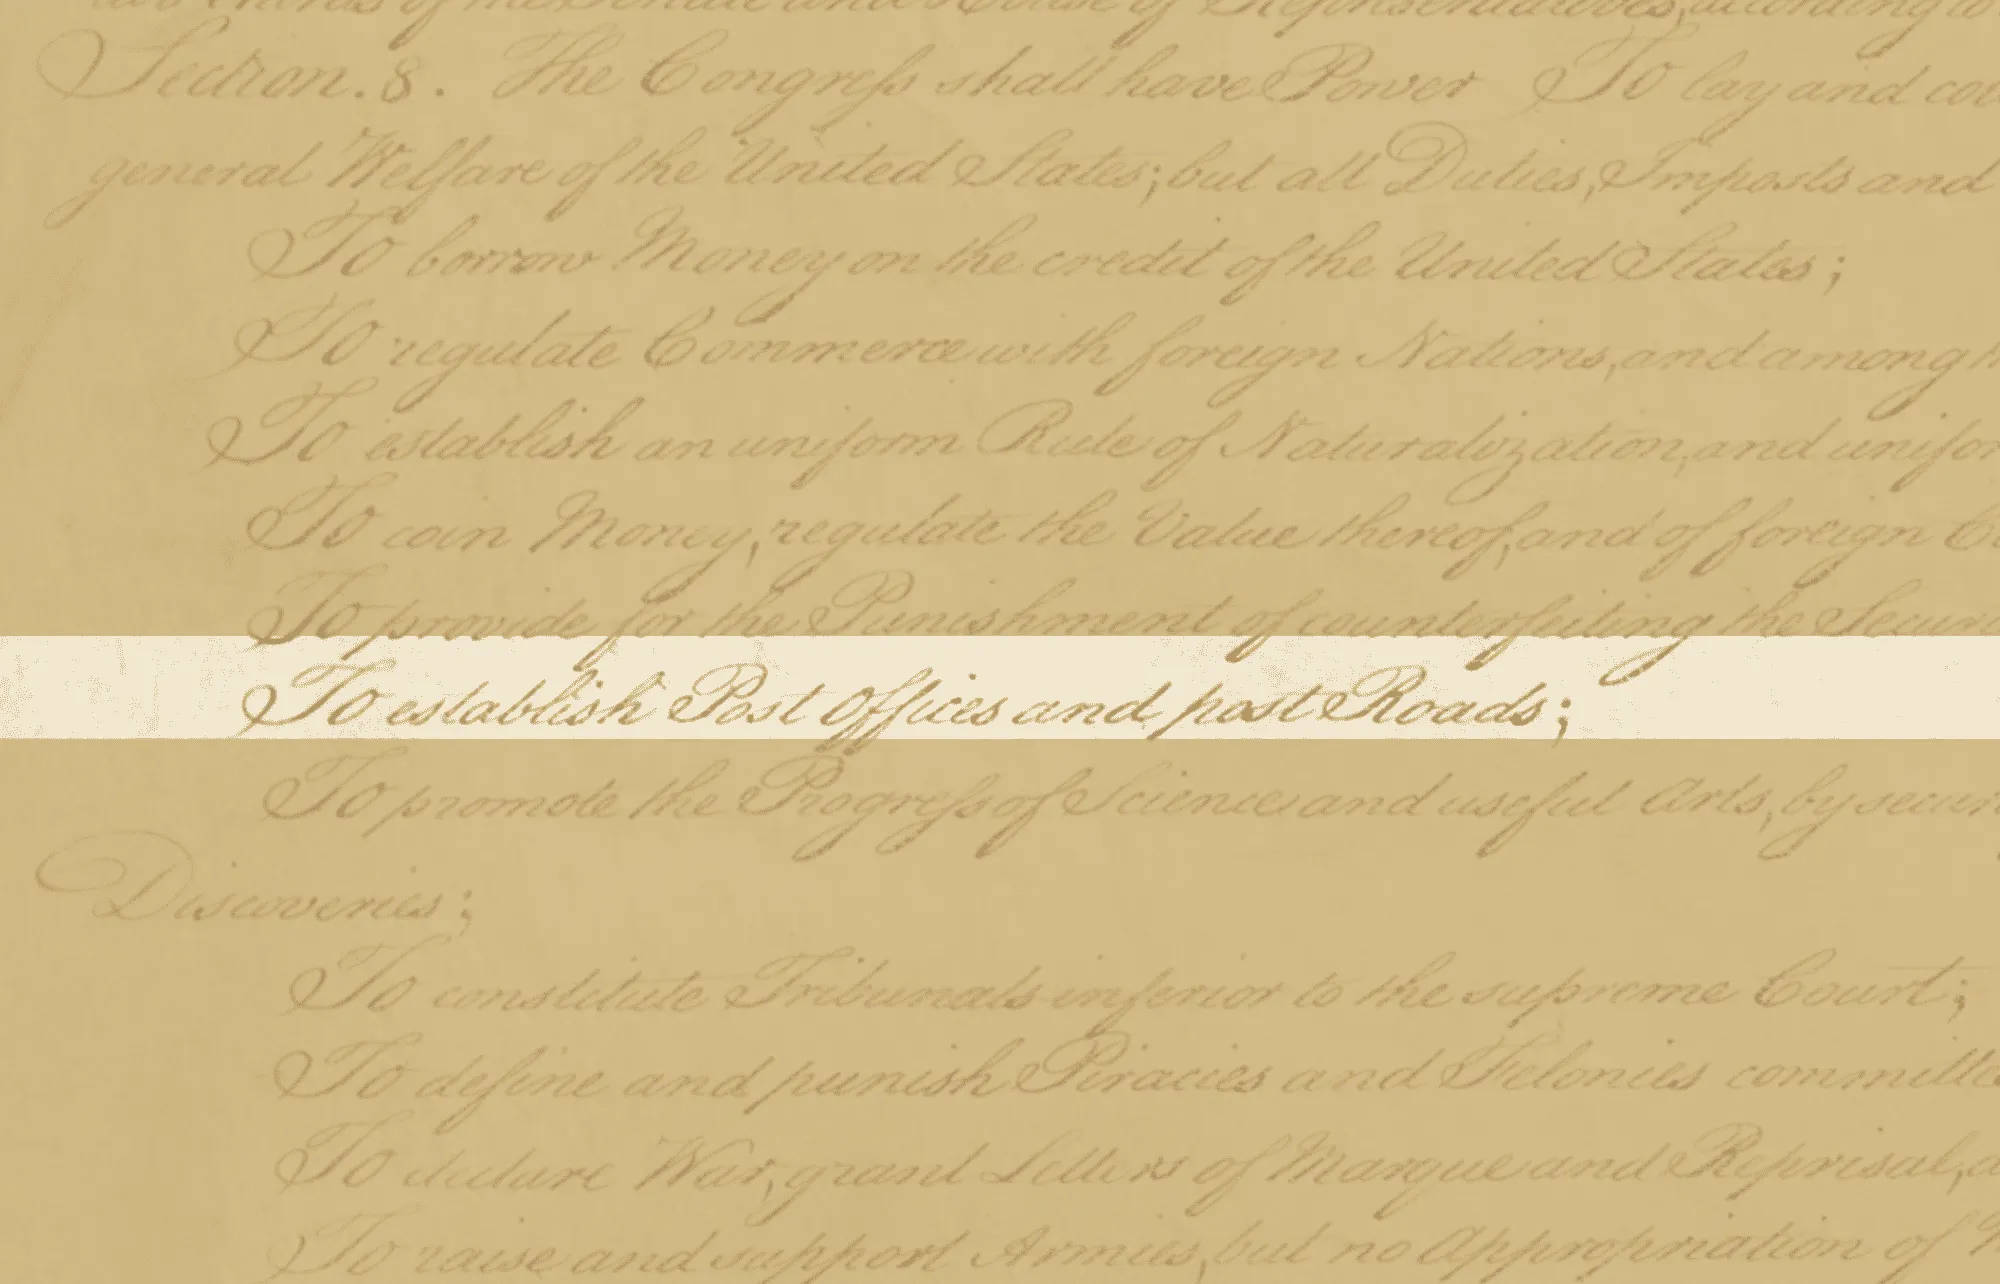 two thirds of the Senate and House of Representatives, according to
Section. 8. The Congress shall have Power To lay and
general Welfare of the United States; but all Duties, Imposts and
To borrow Money on the credit of the United States;
To regulate Commerce with foreign Nations, and among
To establish an uniform Rule of Naturalization, and
To coin Money, regulate the Value thereof, and of foreign
To provide for the Punishment of counterfeiting the
To establish Post Offices and post Roads;
To promote the Progress of Science and useful Arts, by
Discoveries;
To constitute Tribunals inferior to the supreme Court;
To define and punish Piracies and Felonies
To declare War, grant Letters of Marque and Reprisal,
To raise and support Armies, but no Appropriation of